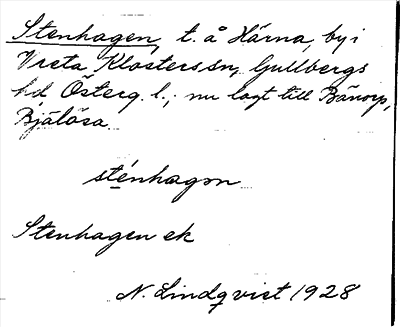 Stenhagen, t. å Härna, by i
Vreta Klosters sn, Gullbergs
hd, Österg. l.; nu lagt till Bänorp,
Bjälösa.
sténhagən
Stenhagen ek
N. Lindqvist 1928